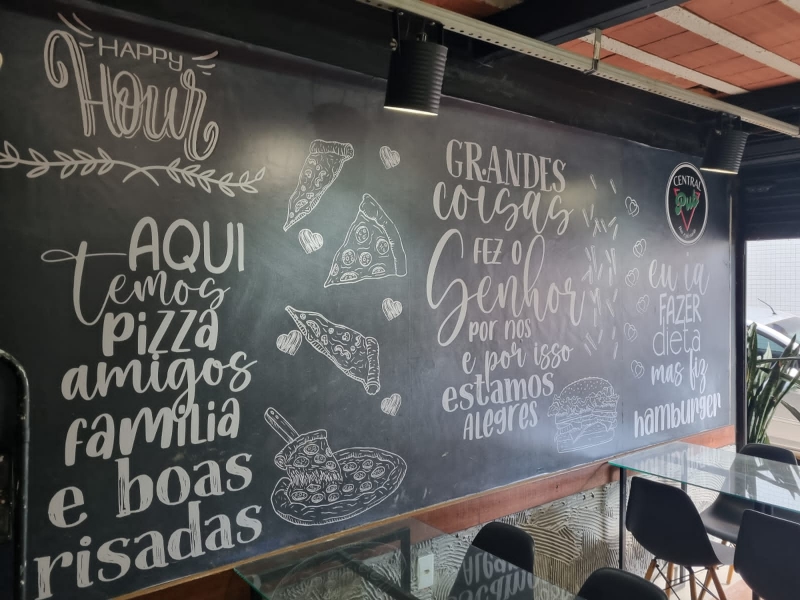 HAPPY
Hour
AQUI
temos
pizza
amigos
família
e boas
risadas
GRANDES
coisas
FEZ O
Senhor
por nos
e por isso
estamos
ALEGRES
CENTRAL
Pub
eu ia
FAZER
dieta
mas fiz
hamburger